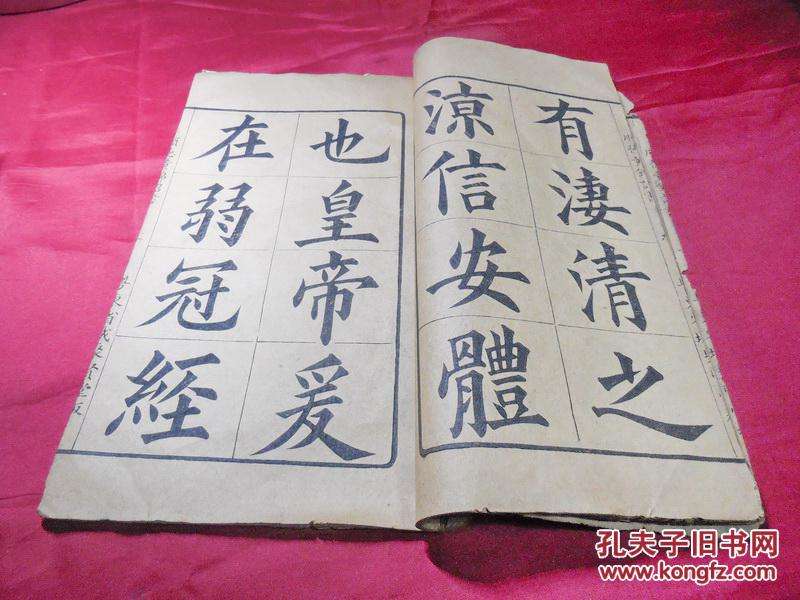 有淒清之
涼信安體
也皇帝爰
在弱冠経
孔夫子旧书网
www.kongfz.com